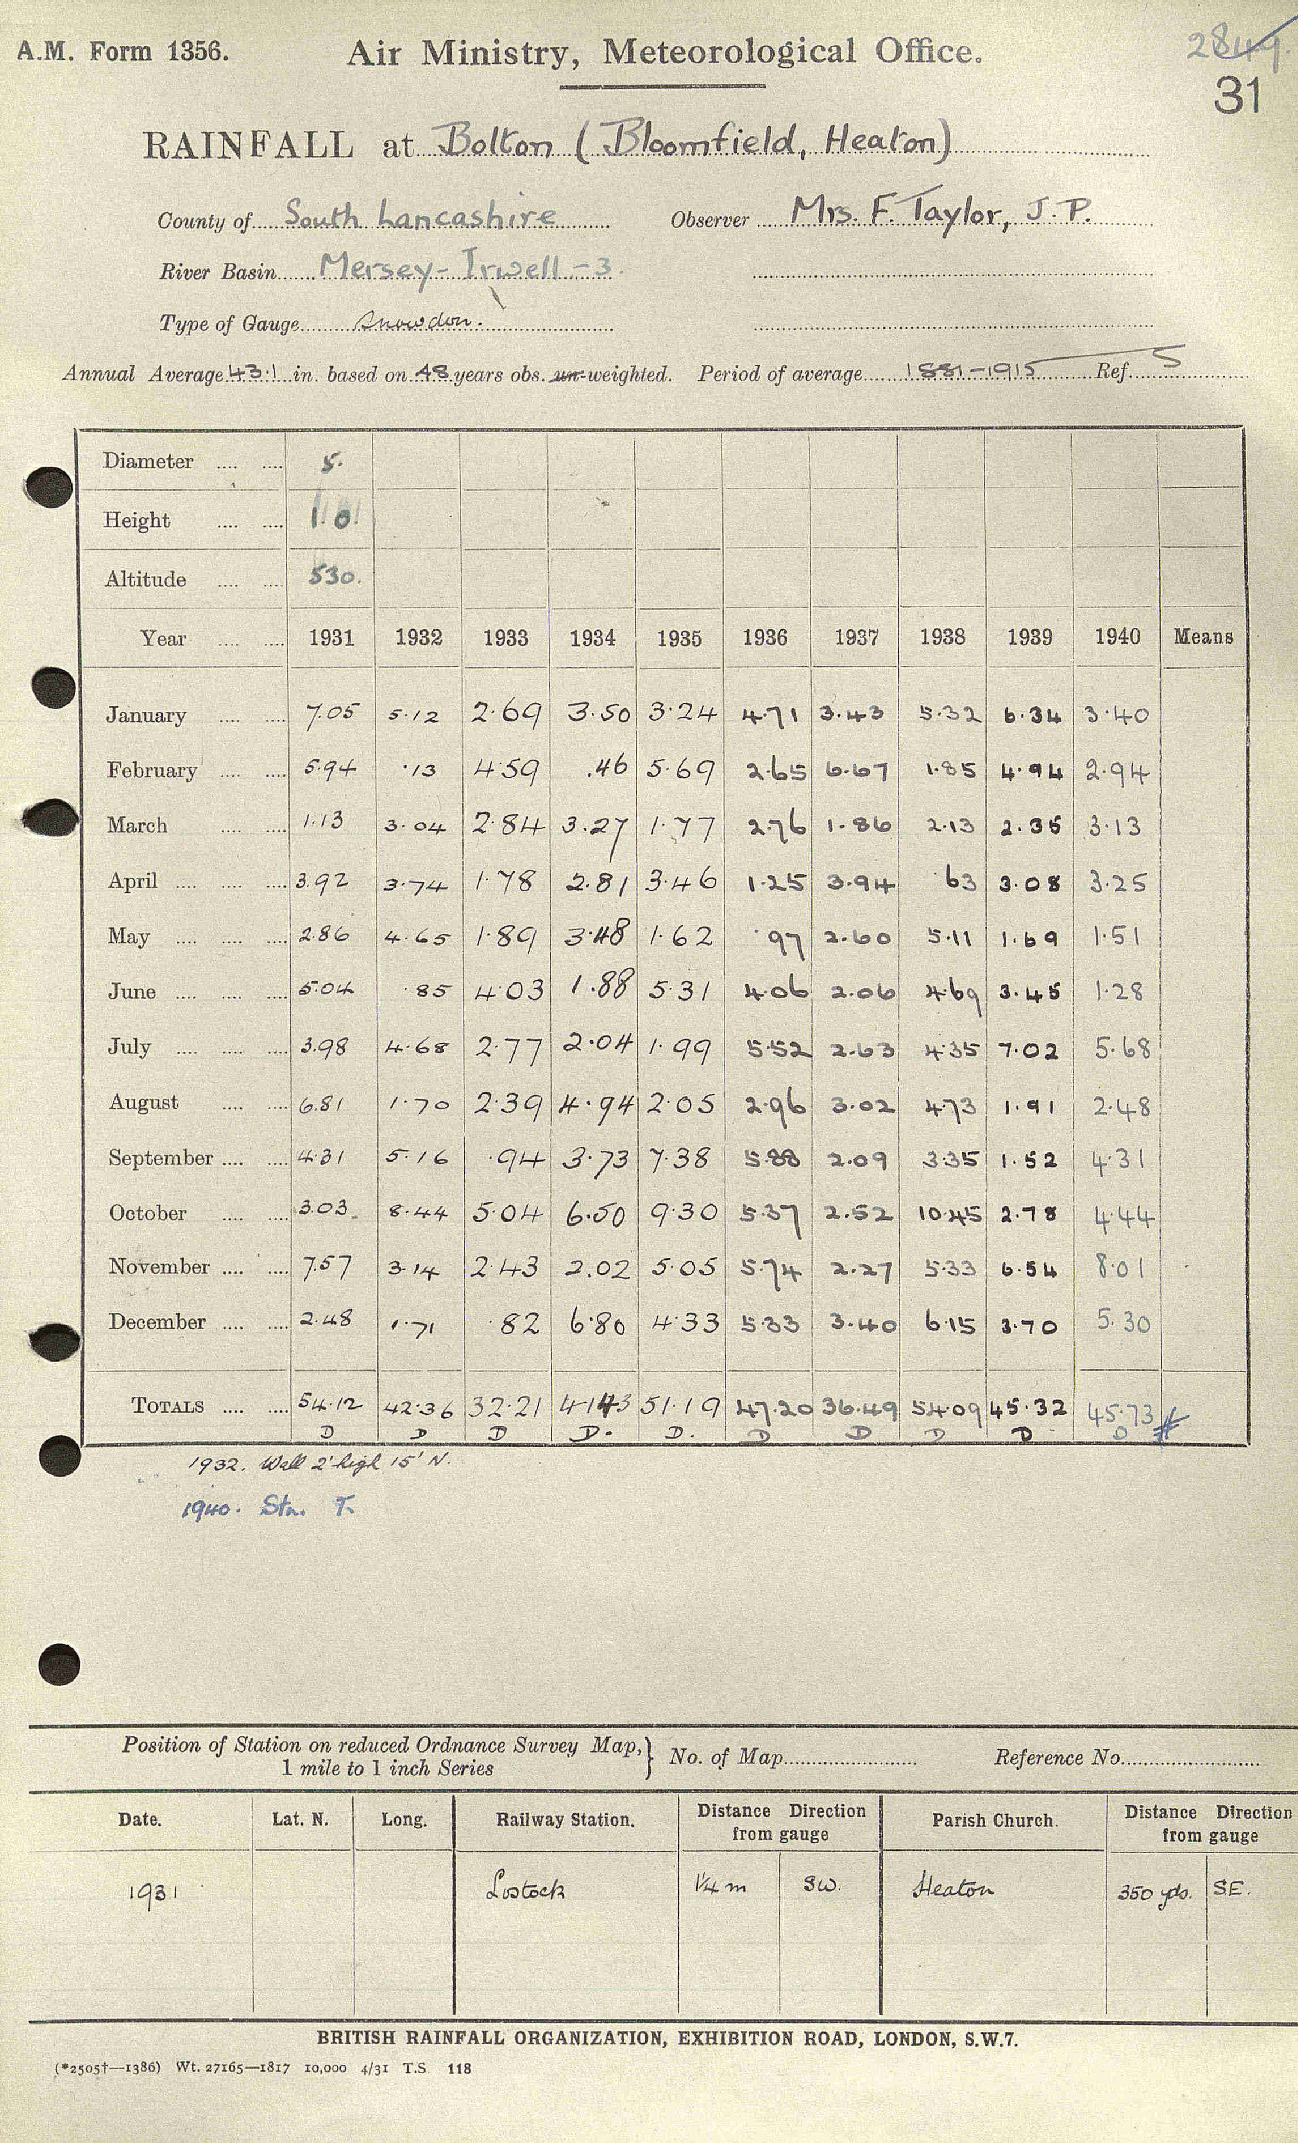 A.M. Form 1356. Air Ministry, Meteorological Office. 2849.
31
RAINFALL at Bolton (Bloomfield, Heaton)
County of South Lancashire Observer Mrs. F. Taylor, J.P.
River Basin Mersey-Irwell-3.
Type of Gauge Snowdon.
Annual Average 43.1 in. based on 48 years obs. un-weighted. Period of average 1881-1915 Ref. S
Diameter .... .... 5.
Height .... .... 1 0
Altitude .... .... 530.
Year .... .... 1931 1932 1933 1934 1935 1936 1937 1938 1939 1940 Means
January .... .... 7.05 5.12 2.69 3.50 3.24 4.71 3.43 5.32 6.34 3.40
February .... .... 5.94 .13 4.59 .46 5.69 2.65 6.67 1.85 4.94 2.94
March .... .... 1.13 3.04 2.84 3.27 1.77 2.76 1.86 2.13 2.35 3.13
April .... .... .... 3.92 3.74 1.78 2.81 3.46 1.25 3.94 .63 3.08 3.25
May .... .... .... 2.86 4.65 1.89 3.48 1.62 .97 2.60 5.11 1.69 1.51
June .... .... .... 5.04 .85 4.03 1.88 5.31 4.06 2.06 4.69 3.45 1.28
July .... .... .... 3.98 4.68 2.77 2.04 1.99 5.52 2.63 4.35 7.02 5.68
August .... .... 6.81 1.70 2.39 4.94 2.05 2.96 3.02 4.73 1.91 2.48
September .... .... 4.31 5.16 .94 3.73 7.38 5.88 2.09 3.35 1.52 4.31
October .... .... 3.03 8.44 5.04 6.50 9.30 5.37 2.52 10.45 2.78 4.44
November .... .... 7.57 3.14 2.43 2.02 5.05 5.74 2.27 5.33 6.54 8.01
December .... .... 2.48 1.71 .82 6.80 4.33 5.33 3.40 6.15 3.70 5.30
TOTALS .... .... 54.12 42.36 32.21 41.43 51.19 47.20 36.49 54.09 45.32 45.73 #
D D D D. D. D D D D D
1932. Wall 2' high 15' N.
1940. Stn. T.
Position of Station on reduced Ordnance Survey Map,} No. of Map Reference No.
1 mile to 1 inch Series
Date. Lat. N. Long. Railway Station. Distance Direction from gauge Parish Church. Distance Direction from gauge
1931 Lostock 1/4 m SW. Heaton 350 yds. S.E.
BRITISH RAINFALL ORGANIZATION, EXHIBITION ROAD, LONDON, S.W.7.
(*2505†—1386) Wt. 27165—1817 10,000 4/31 T.S. 118